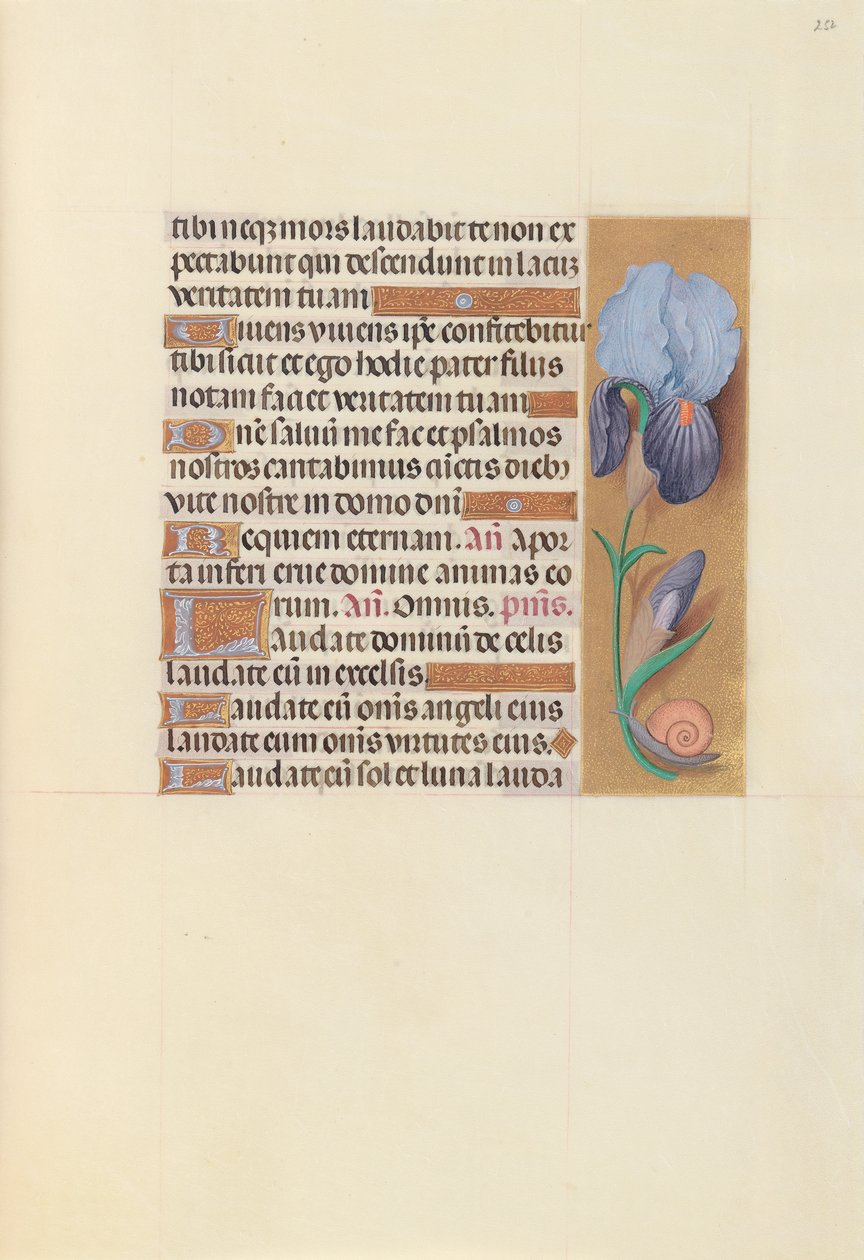 252
tibi neqʒ mors laudabit te non ex
pectabunt qui descendunt in lacuʒ
veritatem tuam
Uiuens viuens ip̄e confitebitur
tibi sicut et ego hodie pater filiis
notam faciet veritatem tuam
Dn̄e saluū me fac et psalmos
nostros cantabimus cūctis diebꝫ
vite nostre in domo dn̄i
Requiem eternam. Añ Apor
ta inferi erue domine animas eo
rum. Añ. Omnis. psm̄s.
Laudate dominū de celis
laudate eū in excelsis.
Laudate eū om̄s angeli eius
laudate eum om̄s virtutes eius.
Laudate eū sol et luna lauda